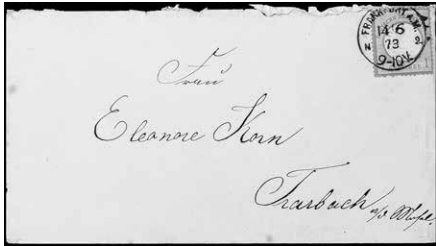 FRANKFURT A.M.
14 6
N 73 2
9-10V.
Frau
Eleonore Korn
Trarbach a/d Mosel.